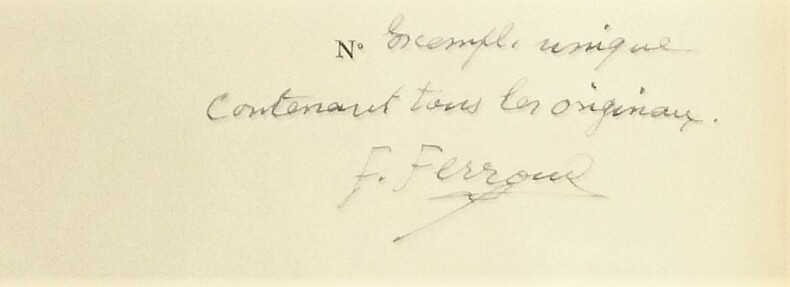 N° Exempl. unique
contenant tous les originaux.
F. Ferroud